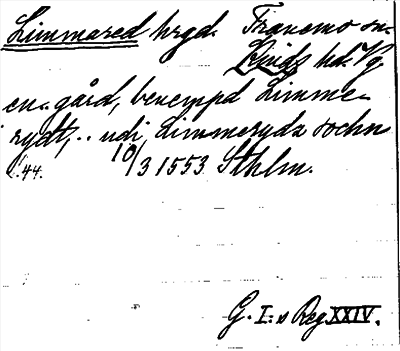 Limmared hrgd. Tranemo sn.
Kinds hd. Vg.
en gård, benempd Limme-
rydt, .. udi Limmerydz sochn
s. 44. 10/3 1553 Sthlm.
G. I:s Reg. XXIV.